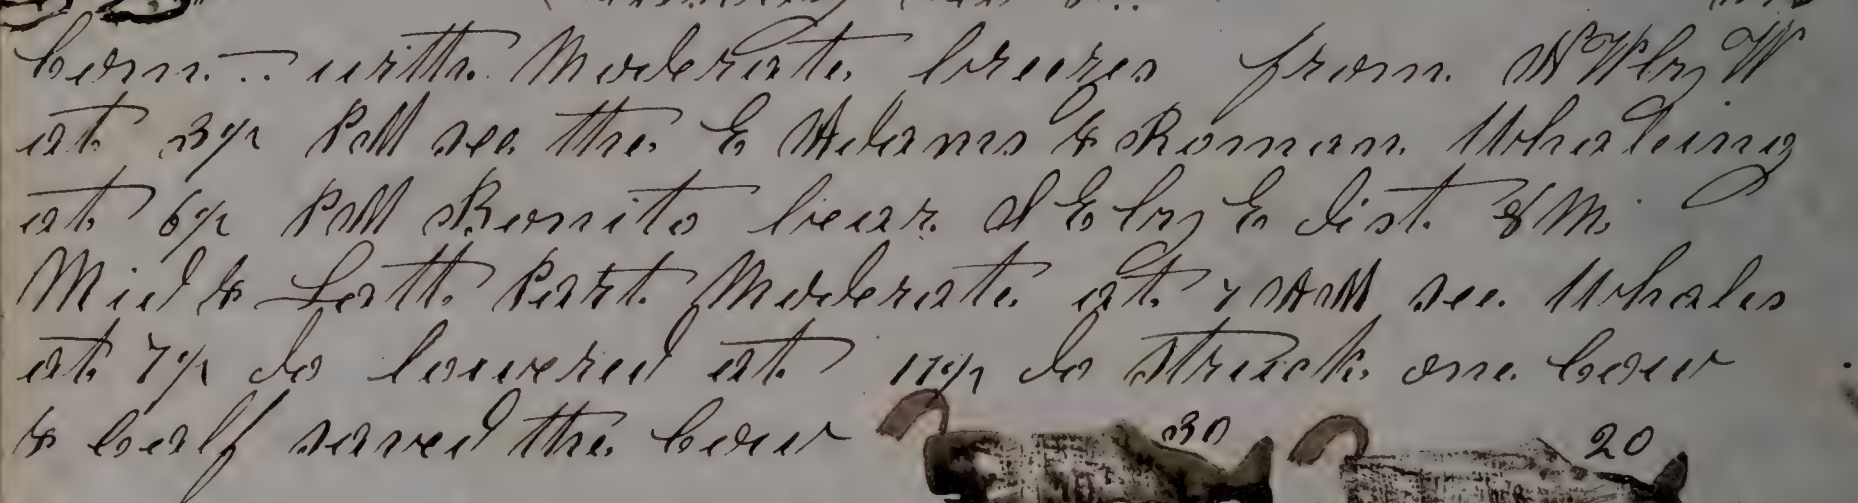 Com. with Moderate breezes from NW by W
at 3½ PM see the E Adams & Roman Whaleing
at 6½ PM Bonito bear S E by E dist 8 M.
Mid & Latt Part Moderate at 7 AM see Whales
at 7½ do lowered at 11½ do struck one Cow
& Calf saved the Cow 30 20